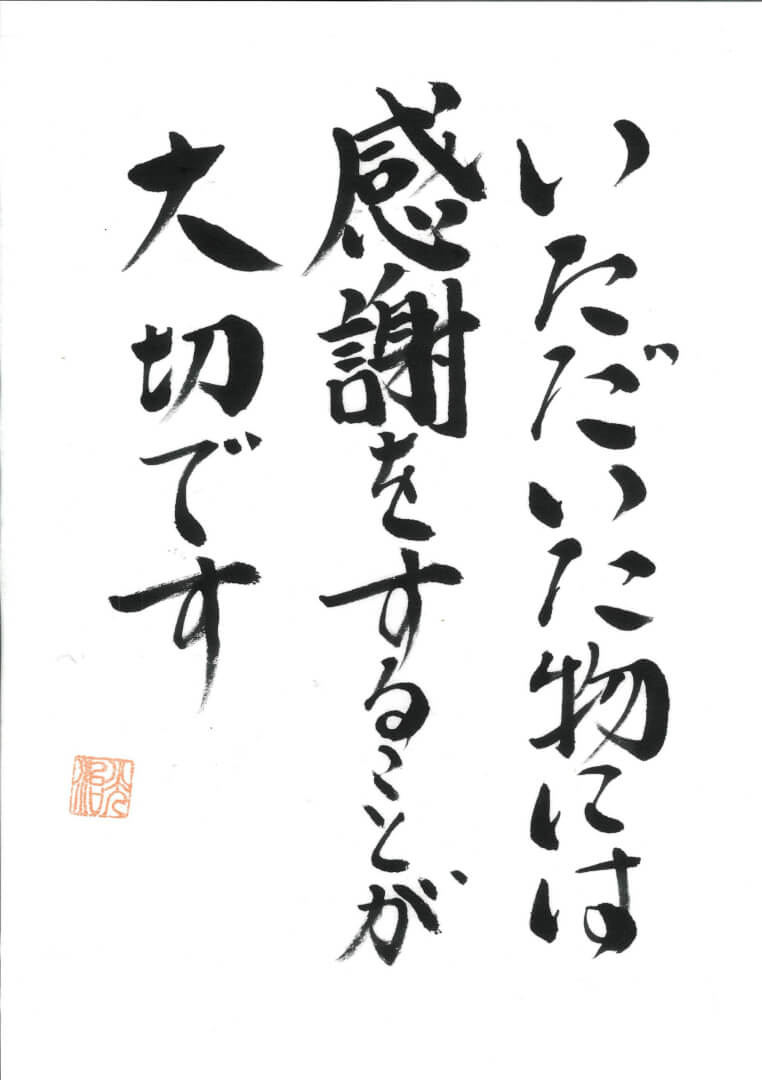 いただいた物には
感謝をすることが
大切です